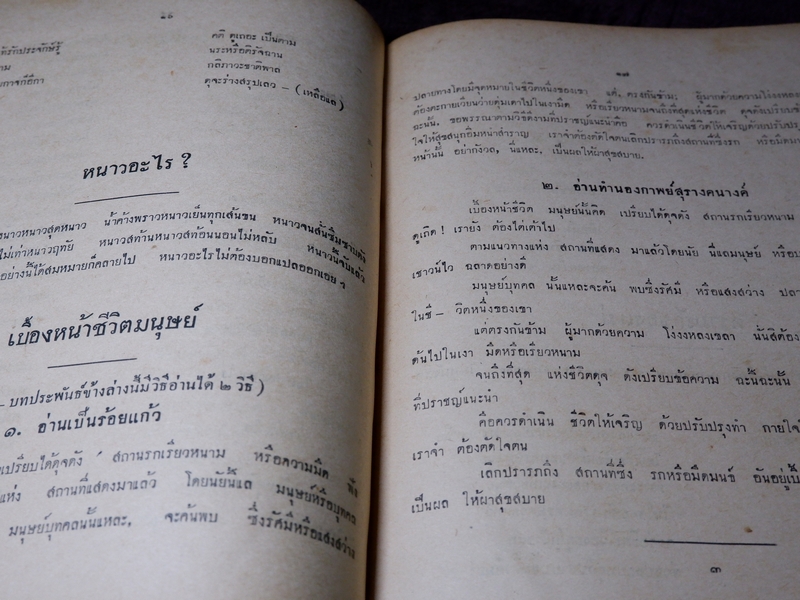 ๒๖
คติ ดูเถอะ เป็นตาม
นระหรือดิรัจฉาน
กลิภาวะชาติพาล
ดุจะร่างสรุปเลว – (เหลือแล)
หนาวอะไร ?
หนาวหนาวสุดหนาว น้ำค้างพราวหนาวเย็นทุกเส้นขน หนาวจนสั่นซึมซาบ
ไม่เท่าหนาวฤทัย หนาวสท้านหนาวสท้อนนอนไม่หลับ หนาวนี้จับแล้ว
อย่างนี้ได้สมหมายก็คลายไป หนาวอะไรไม่ต้องบอกแปลออกเอย ๆ
เบื้องหน้าชีวิตมนุษย์
– บทประพันธ์ข้างล่างนี้มีวิธีอ่านได้ ๒ วิธี)
๑. อ่านเป็นร้อยแก้ว
เปรียบได้ดุจดัง สถานรกเรี้ยวหนาม หรือความมืด
แห่ง สถานที่แสดงมาแล้ว โดยนัยนี้แล มนุษย์หรือบุคคล
มนุษย์บุทคลนั้นแหละ, จะค้นพบ ซึ่งรัศมีหรือแสงสว่าง
๒๗
ปลายทางโดยมีจุดหมายในชีวิตหนึ่งของเขา แต่, ตรงกันข้าม; ผู้มากด้วยความโง่งงหลง
ต้องตะกายเวียนว่ายดุ่มเดาไปในเงามืด หรือเรี้ยวหนามจนถึงที่สุดแห่งชีวิต ดุจดังเปรียบ
ฉะนั้น. ขอพรรณาตามวิธีดีงามที่ปราชญ์แนะนำคือ ควรดำเนินชีวิตให้เจริญด้วยปรับปรุง
ใจให้สุขสนุกอิ่มหน้าสำราญ เราจำต้องตัดใจตนเลิกปรารภถึงสถานที่ซึ่งรก หรือมืดมน
หน้านั้น อย่ากังวล, นี่แหละ. เป็นผลให้ผาสุขสบาย.
๒. อ่านทำนองกาพย์สุรางคนางค์
เบื้องหน้าชีวิต มนุษย์นั้นคิด เปรียบได้ดุจดัง สถานรกเรี้ยวหนาม
ดูเถิด! เรายัง ต้องไต่เต้าไป
ตามแนวทางแห่ง สถานที่แสดง มาแล้วโดยนัย นี่แลมนุษย์ หรือ
เชาวน์ไว ฉลาดอย่างดี
มนุษย์บุทคล นั้นแหละจะค้น พบซึ่งรัศมี หรือแสงสว่าง
ในชี – วิตหนึ่งของเขา
แต่ตรงกันข้าม ผู้มากด้วยความ โง่งงหลงเขลา นั้นสิต้อง
ด้นไปในเงา มืดหรือเรี้ยวหนาม
จนถึงที่สุด แห่งชีวิตดุจ ดังเปรียบข้อความ ฉะนั้นฉะนั้น
ที่ปราชญ์แนะนำ
คือควรดำเนิน ชีวิตให้เจริญ ด้วยปรับปรุงทำ กายใจ
เราจำ ต้องตัดใจตน
เลิกปรารภถึง สถานที่ซึ่ง รกหรือมืดมนธ์ อันอยู่
เป็นผล ให้ผาสุขสบาย
๓